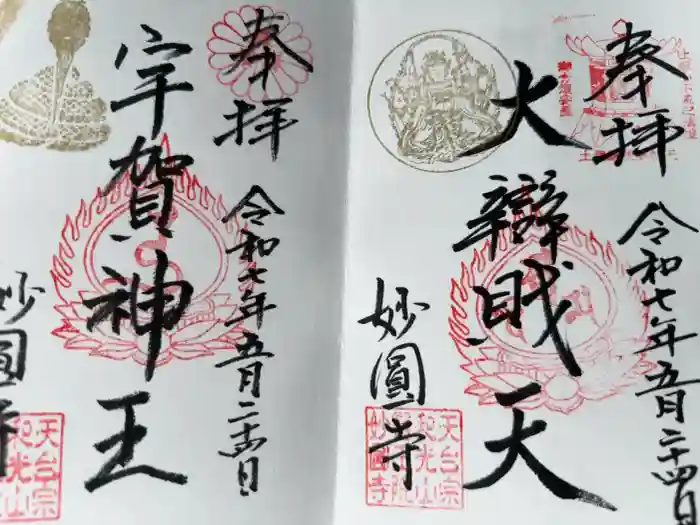 奉拝
令和七年五月二十四日
大辯戝天
妙圓寺
天台宗
和光山
妙圓寺
奉拝
令和七年五月二十四日
宇賀神王
妙圓寺
天台宗
和光山